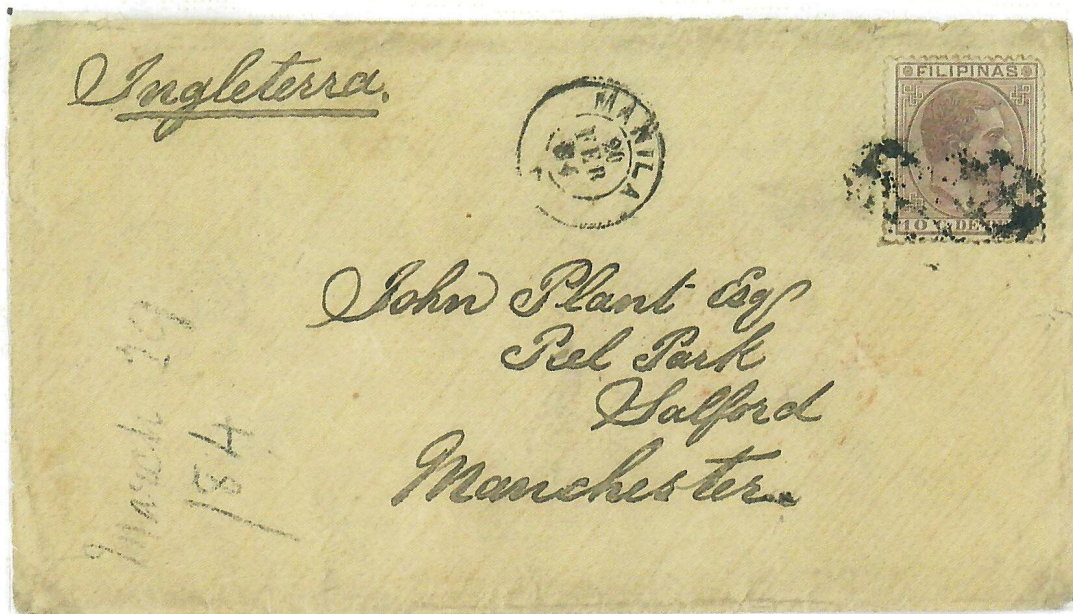 Ingleterra.
MANILA
FILIPINAS
10 C. DE
John Plant Esq
Peel Park
Salford
Manchester
March 29
/84